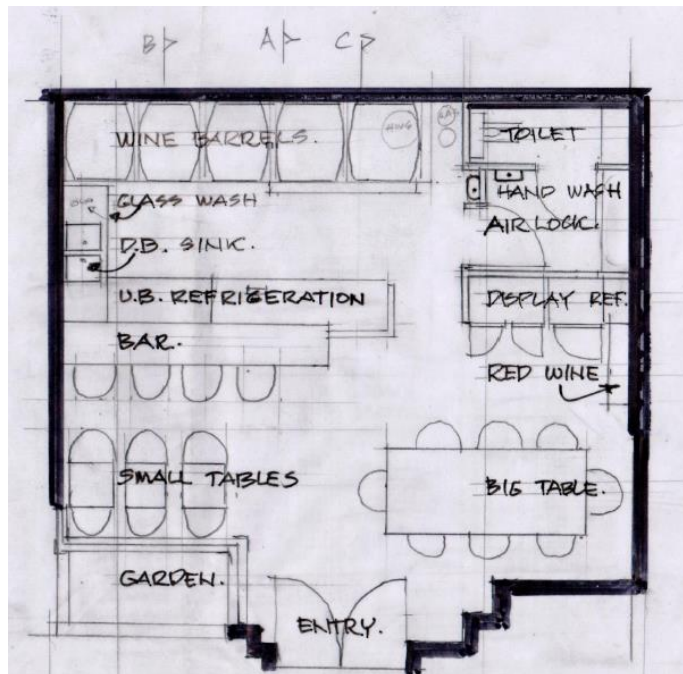 B A C
WINE BARRELS.
TOILET
GLASS WASH
HAND WASH
AIR LOCK.
D.B. SINK.
U.B. REFRIGERATION
DISPLAY REF.
BAR.
RED WINE
SMALL TABLES
BIG TABLE.
GARDEN.
ENTRY.